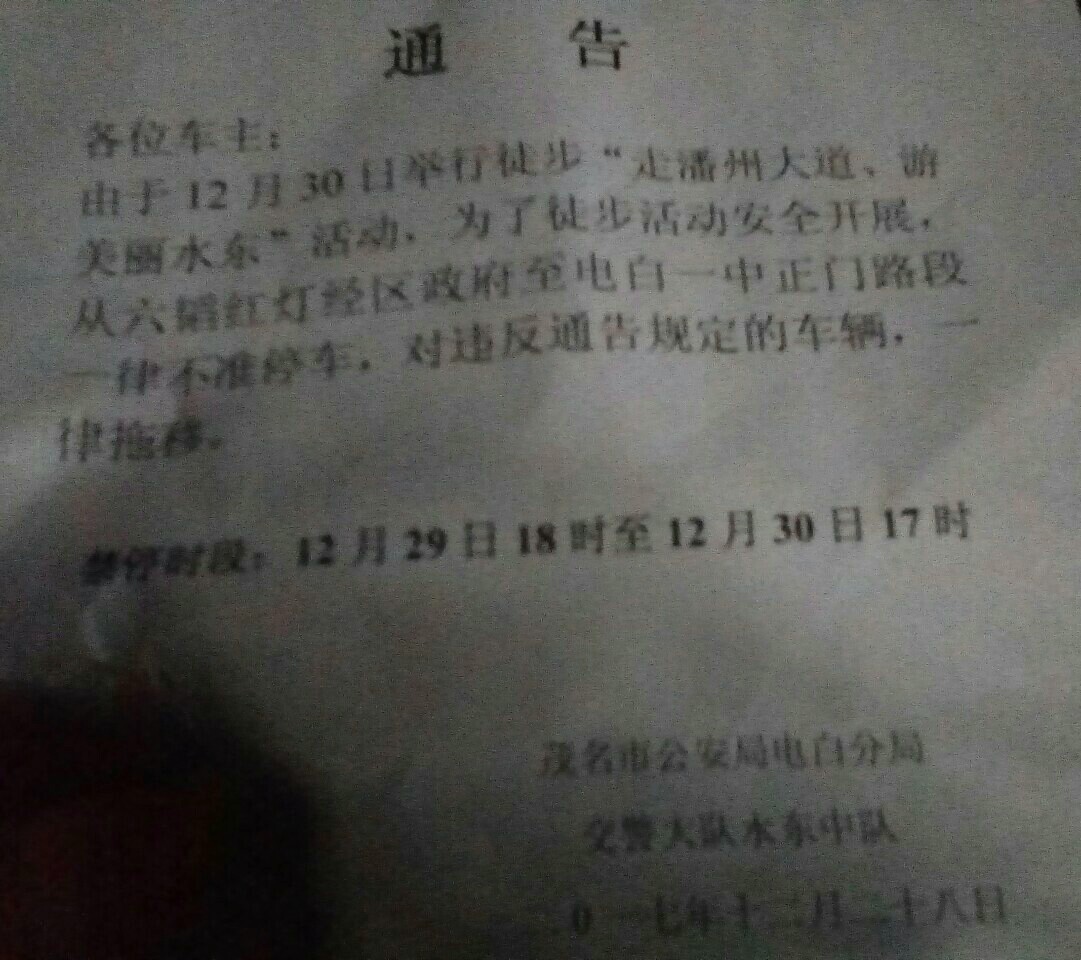 通 告
各位车主：
由于12月30日举行徒步“走潘州大道、游
美丽水东”活动，为了徒步活动安全开展，
从六韬红灯经区政府至电白一中正门路段
一律不准停车，对违反通告规定的车辆，一
律拖移。
禁停时段：12月29日18时至12月30日17时
茂名市公安局电白分局
交警大队水东中队
二0一七年十二月二十八日